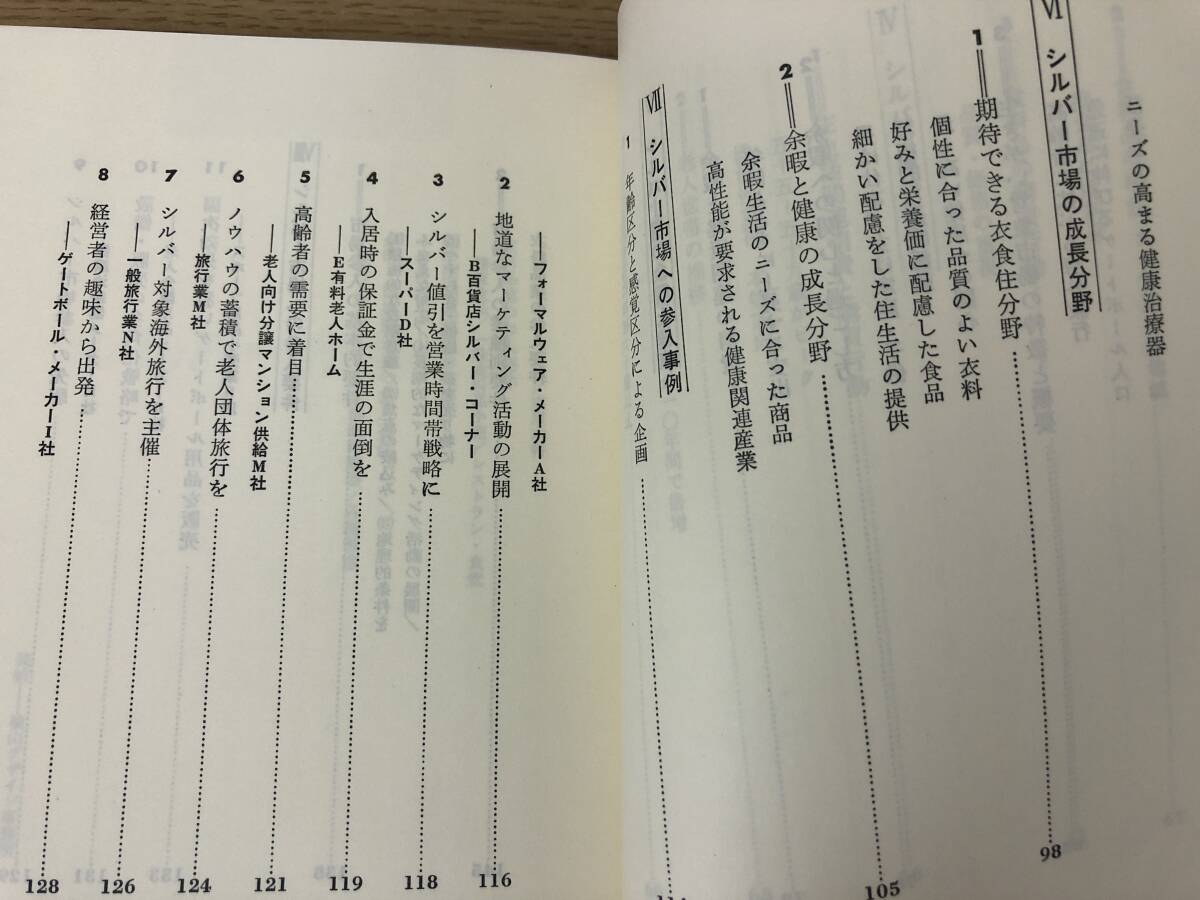 ニーズの高まる健康治療器
VI シルバー市場の成長分野
1 期待できる衣食住分野 98
個性に合った品質のよい衣料
好みと栄養価に配慮した食品
細かい配慮をした住生活の提供
2 余暇と健康の成長分野 105
余暇生活のニーズに合った商品
高性能が要求される健康関連産業
VII シルバー市場への参入事例
1 年齢区分と感覚区分による企画
――フォーマルウェア・メーカーA社
2 地道なマーケティング活動の展開 116
――B百貨店シルバー・コーナー
3 シルバー値引を営業時間帯戦略に 118
――スーパーD社
4 入居時の保証金で生涯の面倒を 119
――E有料老人ホーム
5 高齢者の需要に着目 121
――老人向け分譲マンション供給M社
6 ノウハウの蓄積で老人団体旅行を 124
――旅行業M社
7 シルバー対象海外旅行を主催 126
――一般旅行業N社
8 経営者の趣味から出発 128
――ゲートボール・メーカーI社